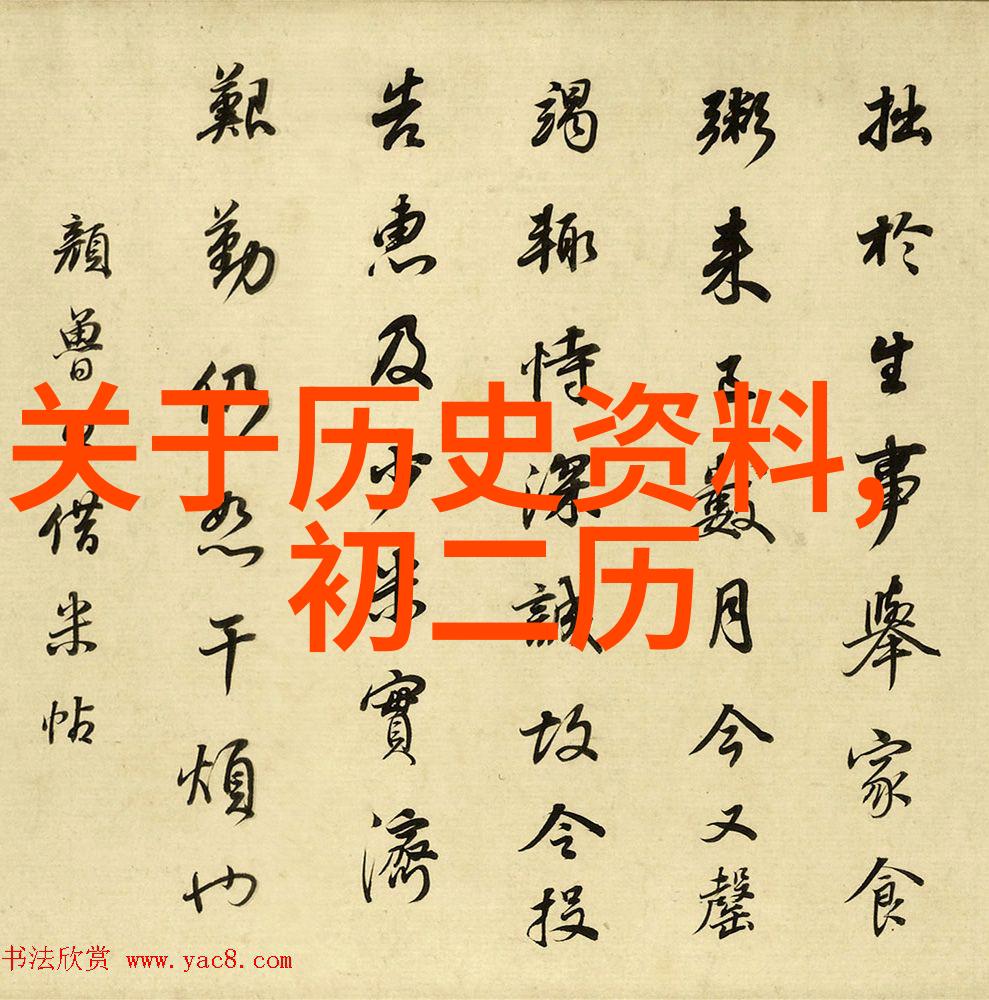 拙於生事舉家食
粥来已數月今又罄
竭輙恃深誠故令投
告惠及少米實濟
艱勤仍恕干煩也
顔魯公借米帖
关于历史资料,
初二历
书法欣赏 www.yac8.com